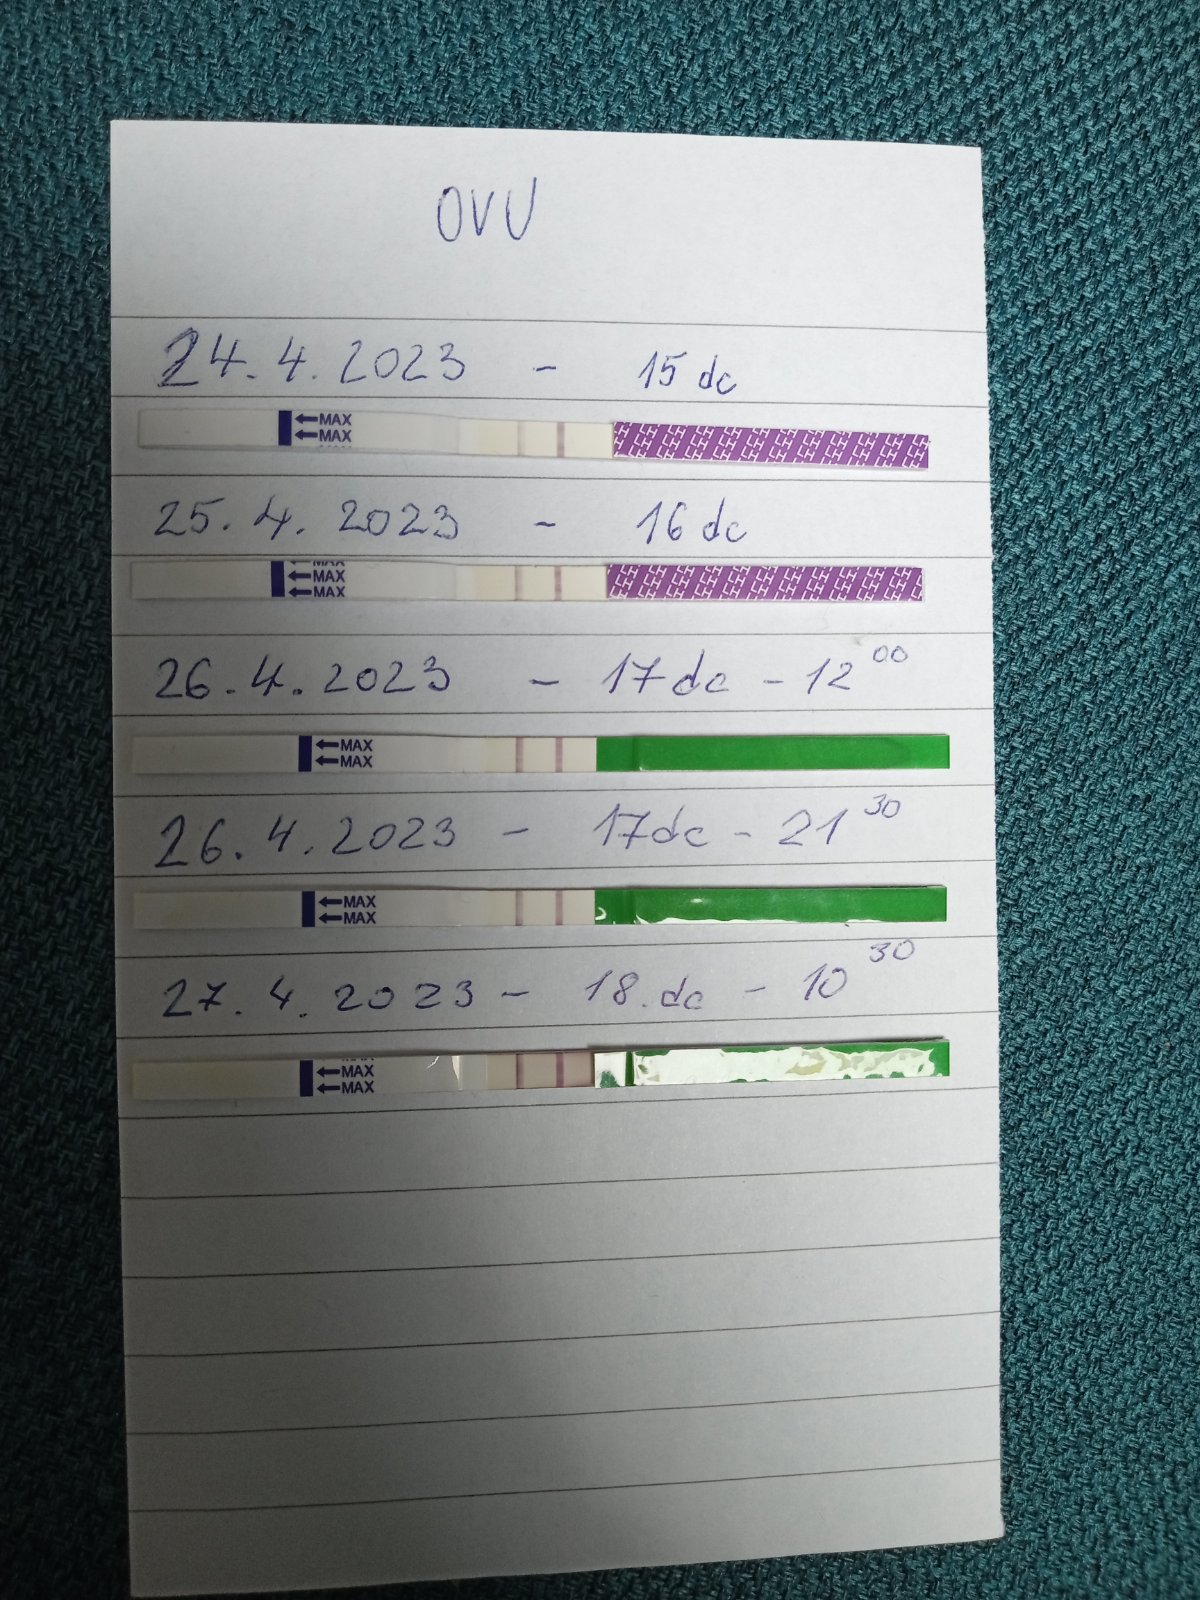 OVU
24.4.2023 - 15 dc
MAX
MAX
25.4.2023 - 16 dc
MAX
MAX
MAX
26.4.2023 - 17dc - 12 00
MAX
MAX
26.4.2023 - 17dc - 21 30
MAX
MAX
27.4.2023 - 18.dc - 10 30
MAX
MAX
MAX